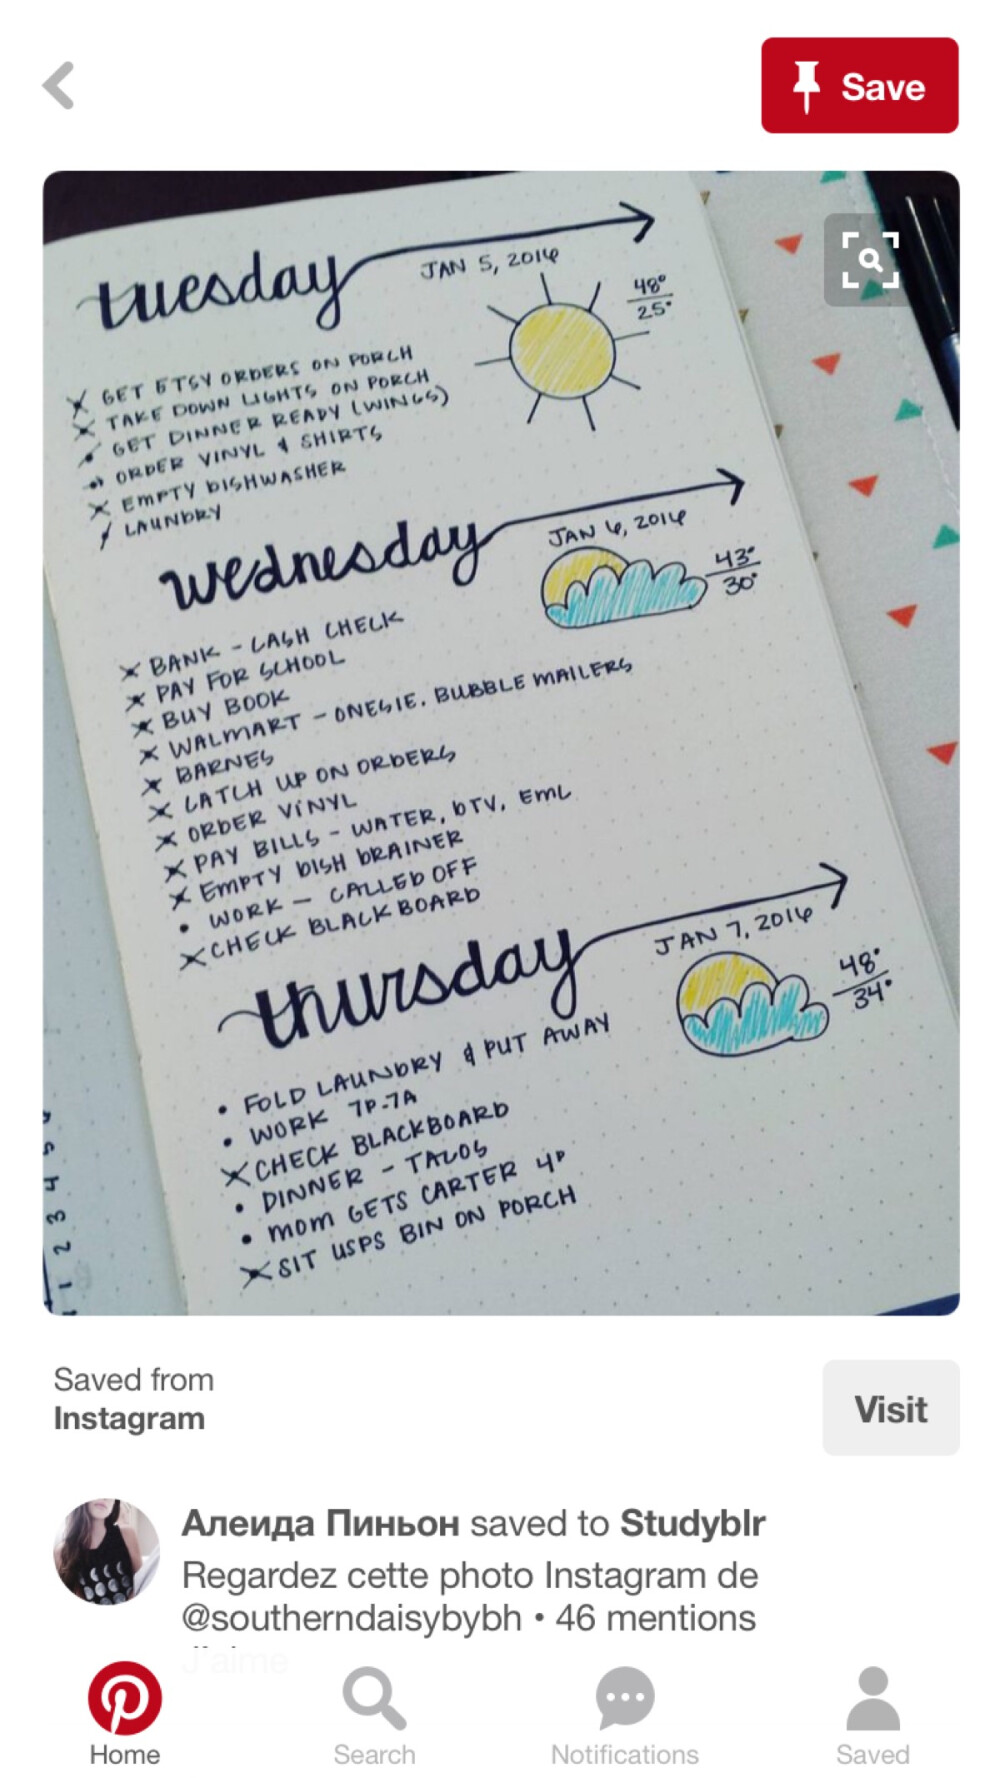 Save
tuesday
JAN 5, 2016
48°
25°
GET ETSY ORDERS ON PORCH
TAKE DOWN LIGHTS ON PORCH
GET DINNER READY (WINGS)
ORDER VINYL & SHIRTS
EMPTY DISHWASHER
LAUNDRY
wednesday
JAN 6, 2016
43°
30°
BANK - CASH CHECK
PAY FOR SCHOOL
BUY BOOK
WALMART - ONESIE. BUBBLE MAILERS
BARNES
CATCH UP ON ORDERS
ORDER VINYL
PAY BILLS - WATER, DTV, EML
EMPTY DISH DRAINER
WORK - CALLED OFF
CHECK BLACKBOARD
thursday
JAN 7, 2016
48°
34°
• FOLD LAUNDRY & PUT AWAY
• WORK 7P-7A
CHECK BLACKBOARD
• DINNER - TACOS
• MOM GETS CARTER 4P
SIT USPS BIN ON PORCH
5
4
3
2
1
Saved from
Instagram
Visit
Алеида Пиньон saved to Studyblr
Regardez cette photo Instagram de
@southerndaisybybh • 46 mentions
J'aime
Home
Search
Notifications
Saved